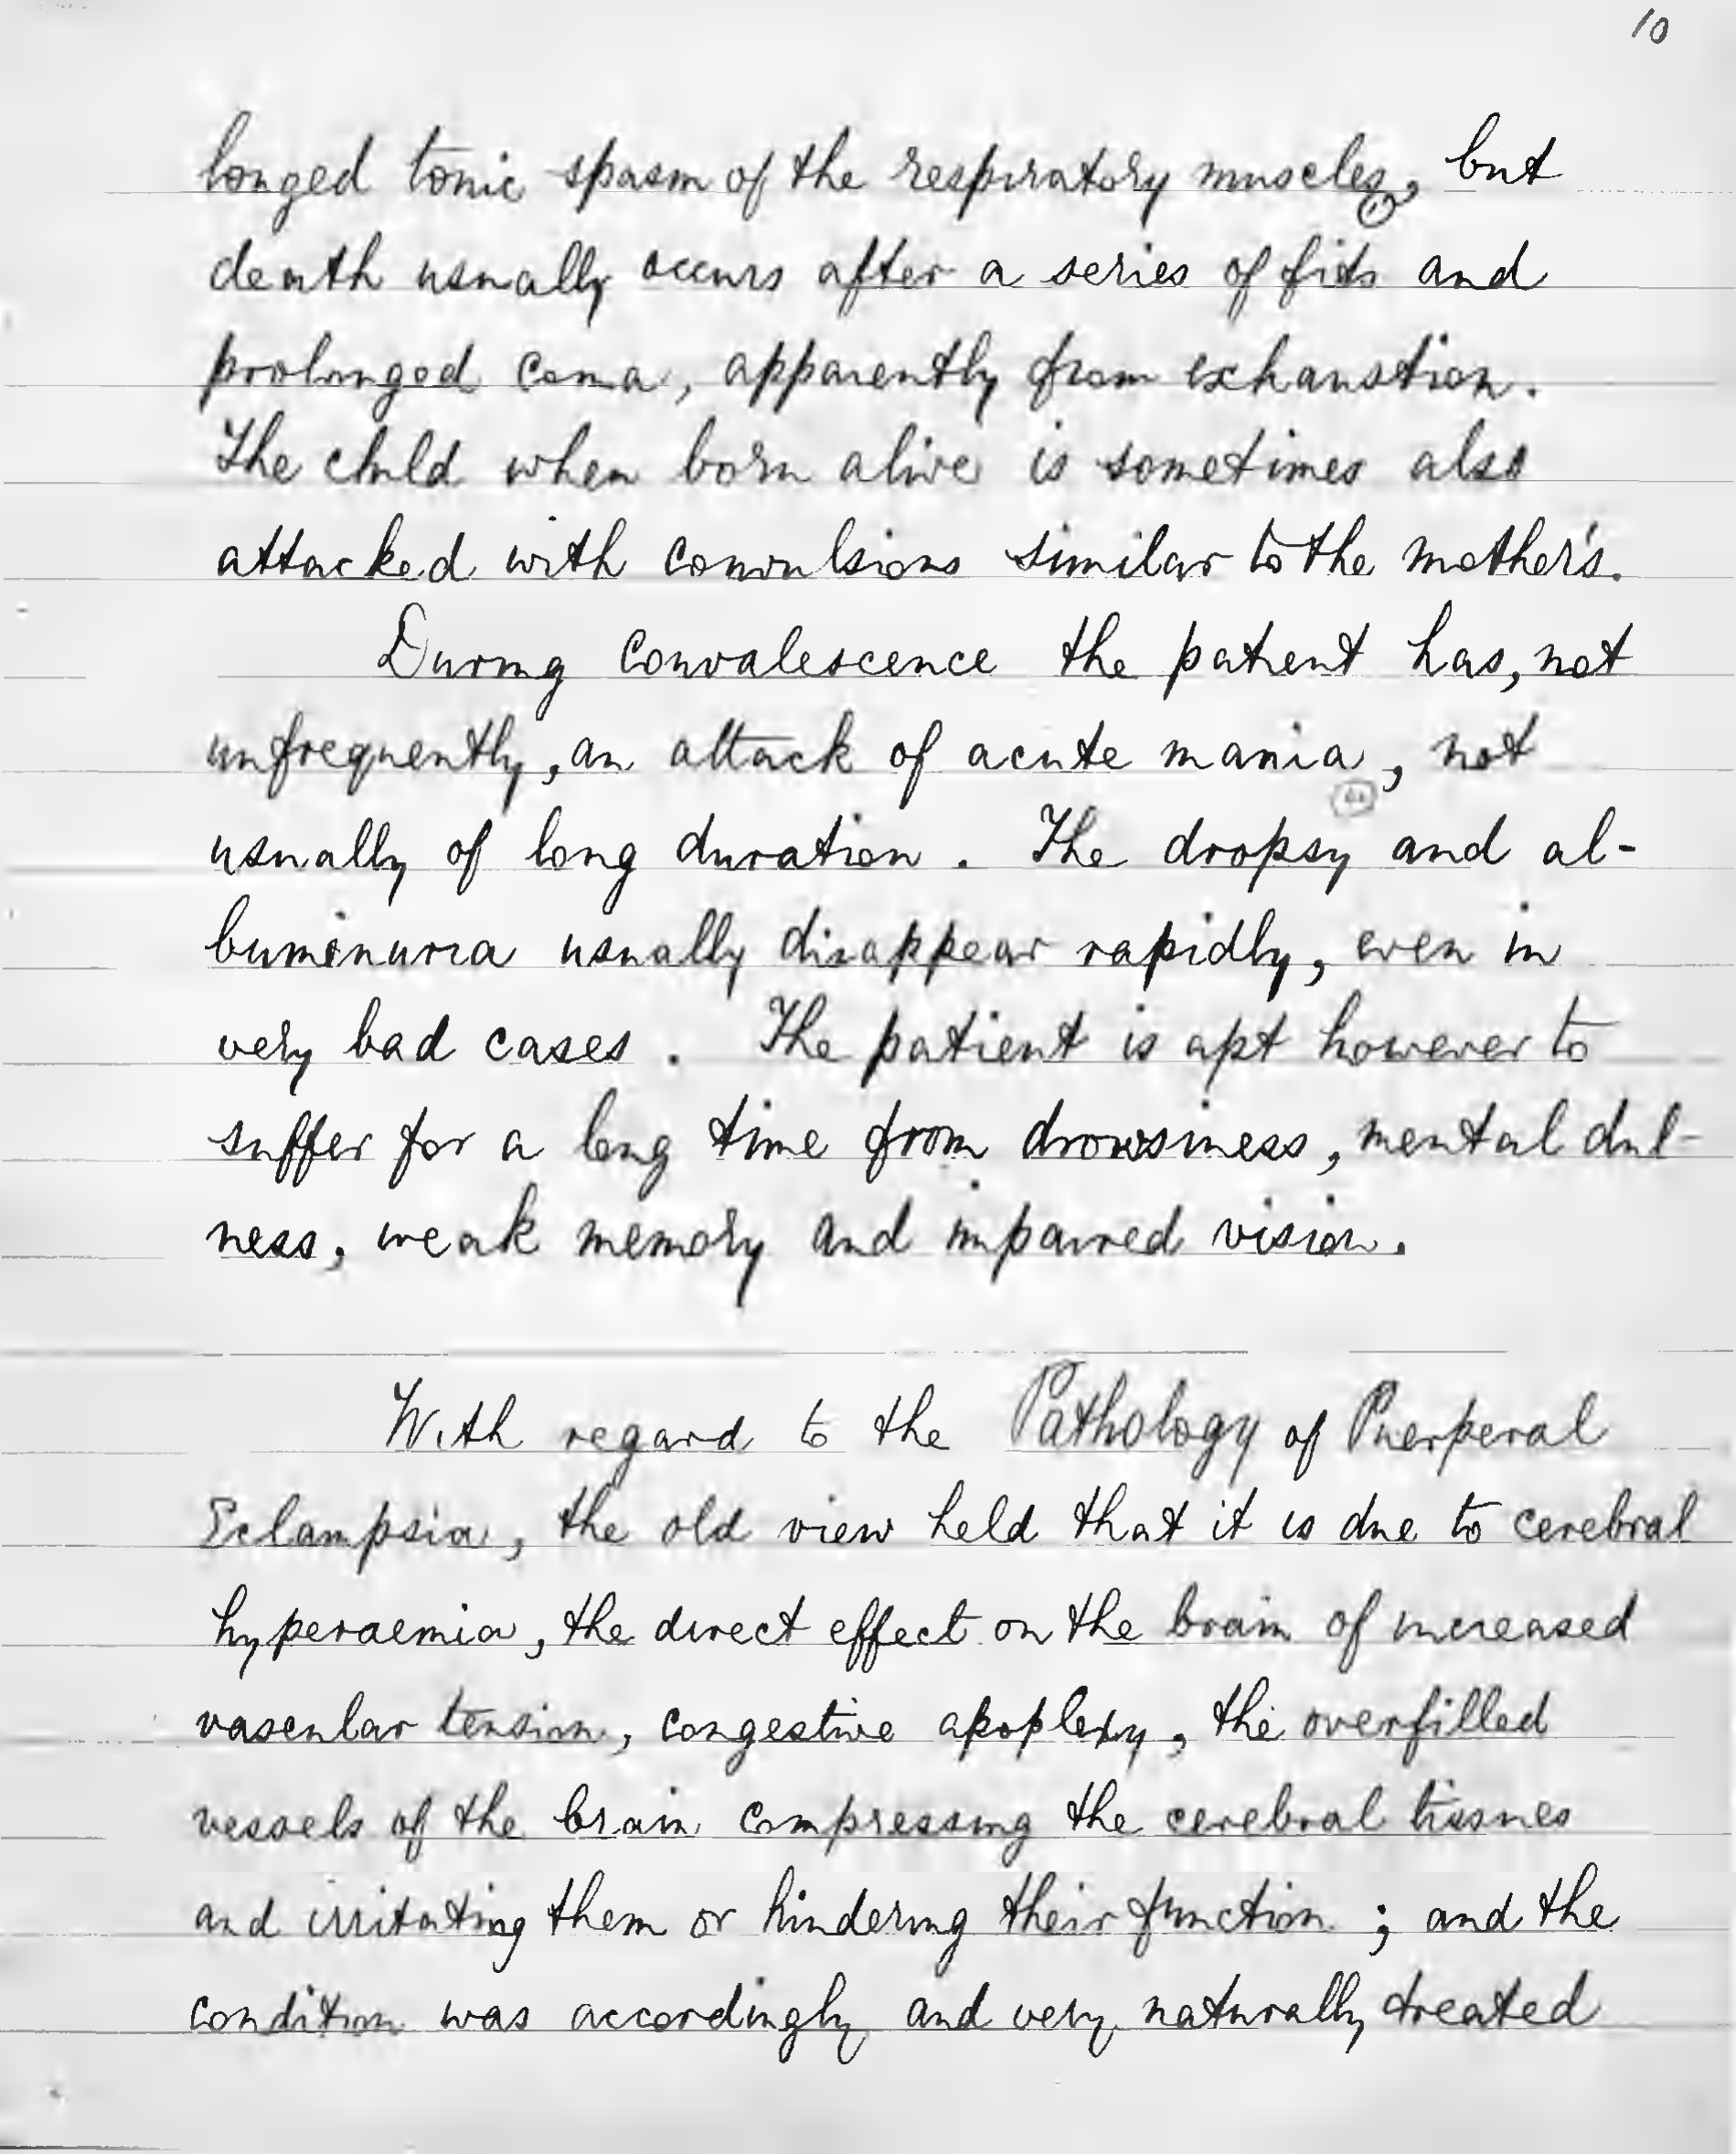 10
longed tonic spasm of the respiratory muscles, but
death usually occurs after a series of fits and
prolonged coma, apparently from exhaustion.
The child when born alive is sometimes also
attacked with convulsions similar to the mother's.
During convalescence the patient has, not
unfrequently, an attack of acute mania, not
usually of long duration. The dropsy and al-
buminuria usually disappear rapidly, even in
very bad cases. The patient is apt however to
suffer for a long time from drowsiness, mental dul-
ness, weak memory and impaired vision.
With regard to the Pathology of Puerperal
Eclampsia, the old view held that it is due to cerebral
hyperaemia, the direct effect on the brain of increased
vascular tension, congestive apoplexy, the overfilled
vessels of the brain compressing the cerebral tissues
and irritating them or hindering their function; and the
condition was accordingly and very naturally treated